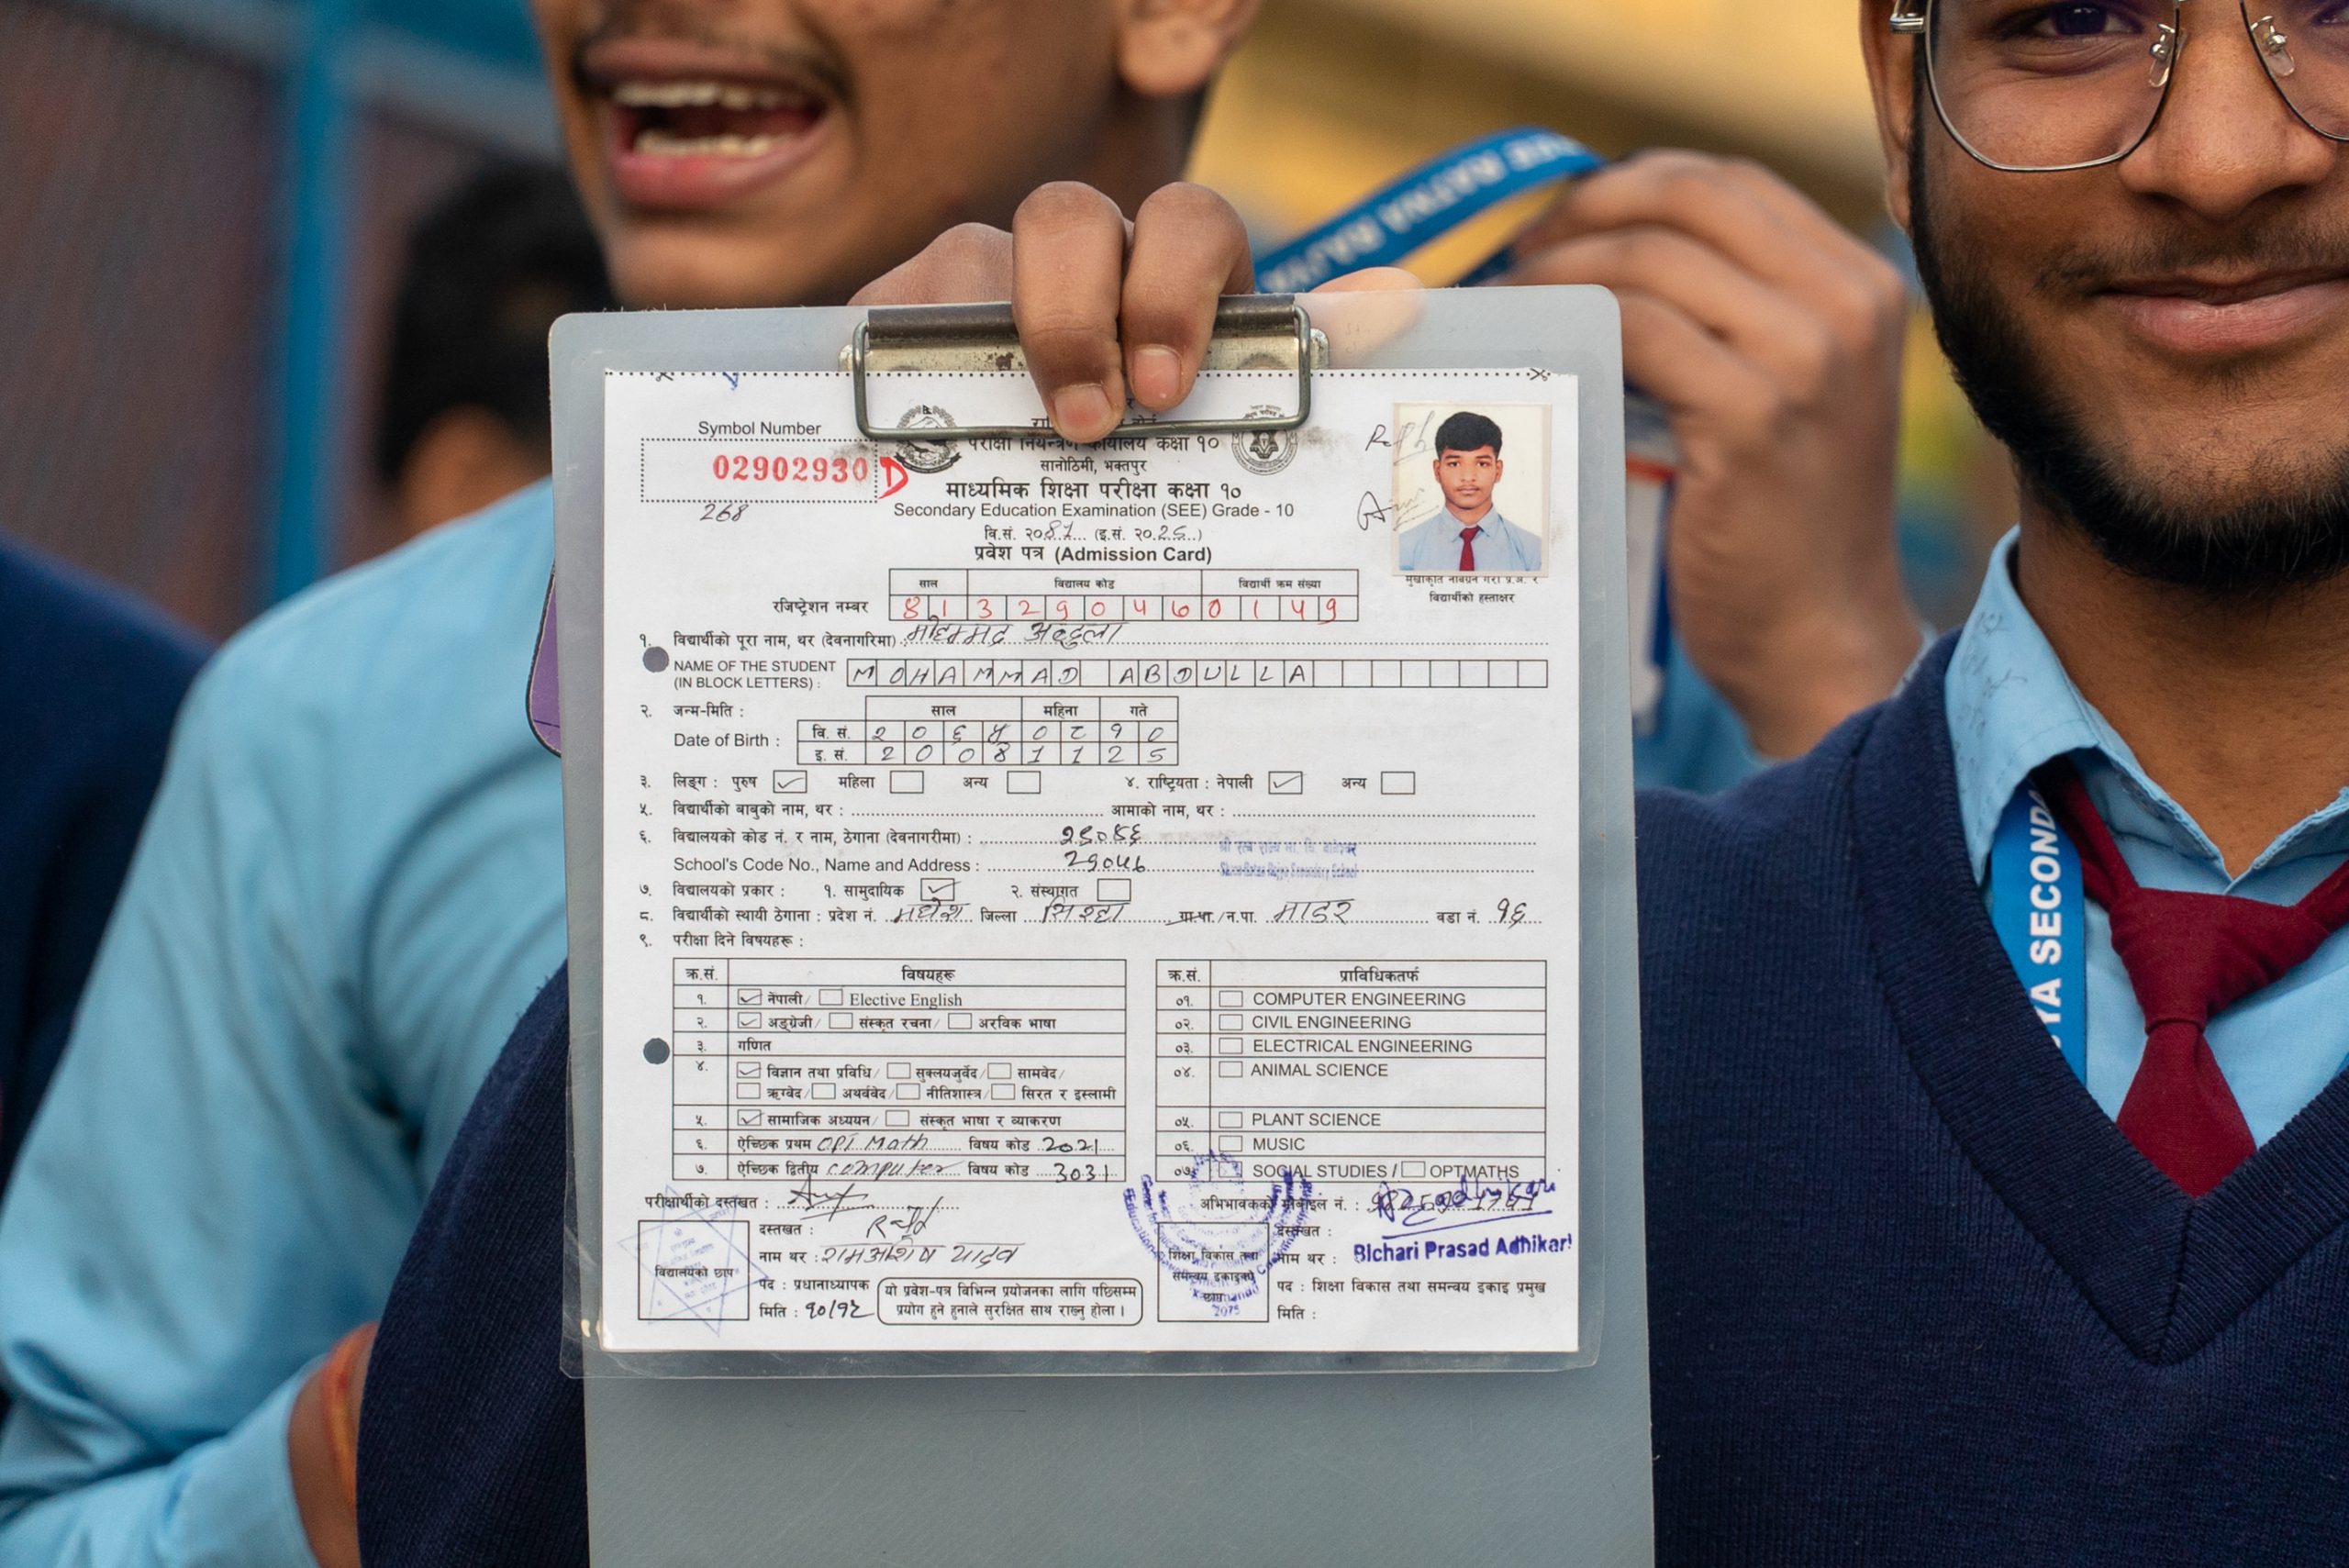 RATNA RAJYA
Symbol Number
02902930 D
268
परीक्षा नियन्त्रण कार्यालय कक्षा १०
सानोठिमी, भक्तपुर
माध्यमिक शिक्षा परीक्षा कक्षा १०
Secondary Education Examination (SEE) Grade - 10
वि.सं. २०81 (इ.सं. २०.25.)
प्रवेश पत्र (Admission Card)
विद्यार्थीको हस्ताक्षर
साल विद्यालय कोड विद्यार्थी क्रम संख्या
रजिष्ट्रेशन नम्बर 8 1 3 2 9 0 4 6 0 1 4 9
१. विद्यार्थीको पूरा नाम, थर (देवनागरिमा) मोहम्मद अब्दुला
NAME OF THE STUDENT (IN BLOCK LETTERS) : MOHAMMAD ABDULLA
२. जन्म-मिति : साल महिना गते
Date of Birth : वि. सं. २ ० ६ ५ ० ८ १ ०
इ. सं. 2 0 0 8 1 1 2 5
३. लिङ्ग : पुरुष महिला अन्य ४. राष्ट्रियता : नेपाली अन्य
५. विद्यार्थीको बाबुको नाम, थर : आमाको नाम, थर :
६. विद्यालयको कोड नं. र नाम, ठेगाना (देवनागरीमा) : २९०४६
School's Code No., Name and Address : 29046
७. विद्यालयको प्रकार : १. सामुदायिक २. संस्थागत
८. विद्यार्थीको स्थायी ठेगाना : प्रदेश नं. मधेश जिल्ला सिरहा ग्रा.पा./न.पा. माडर वडा नं. १६
९. परीक्षा दिने विषयहरू :
क्र.सं. विषयहरू
१. नेपाली/ Elective English
२. अङ्ग्रेजी/ संस्कृत रचना/ अरविक भाषा
३. गणित
४. विज्ञान तथा प्रविधि/ सुक्लयजुर्वेद/ सामवेद/
ऋग्वेद/ अथर्ववेद/ नीतिशास्त्र/ सिरत र इस्लामी
५. सामाजिक अध्ययन/ संस्कृत भाषा र व्याकरण
६. ऐच्छिक प्रथम OPT Math विषय कोड 2021
७. ऐच्छिक द्वितीय computer विषय कोड 3031
क्र.सं. प्राविधिकतर्फ
०१. COMPUTER ENGINEERING
०२. CIVIL ENGINEERING
०३. ELECTRICAL ENGINEERING
०४. ANIMAL SCIENCE
०५. PLANT SCIENCE
०६. MUSIC
०७. SOCIAL STUDIES / OPTMATHS
परीक्षार्थीको दस्तखत :
दस्तखत :
नाम थर : रामआशिष यादव
पद : प्रधानाध्यापक
मिति : १०/१८
विद्यालयको छाप
यो प्रवेश-पत्र विभिन्न प्रयोजनका लागि पछिसम्म
प्रयोग हुने हुनाले सुरक्षित साथ राख्नु होला ।
अभिभावकको मोबाइल नं. :
दस्तखत :
नाम थर : Bichari Prasad Adhikari
पद : शिक्षा विकास तथा समन्वय इकाइ प्रमुख
मिति :
शिक्षा विकास तथा
समन्वय इकाइको
छाप
2075
YA SECOND